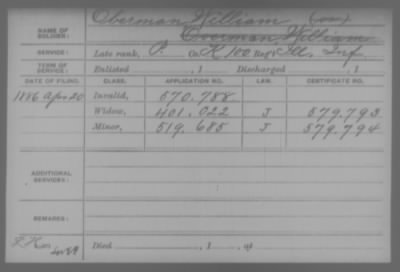 Oberman William
NAME OF SOLDIER: Overman William
SERVICE: Late rank, P. Co. K, 100 Reg't Ill. Inf
TERM OF SERVICE: Enlisted , 1 Discharged , 1
DATE OF FILING. CLASS. APPLICATION NO. LAW. CERTIFICATE NO.
1886 Apr 20 Invalid, 570.788
Widow, 401.022 J 579.793
Minor, 519.685 J 579.794
ADDITIONAL SERVICES:
REMARKS:
Died , 1 , at